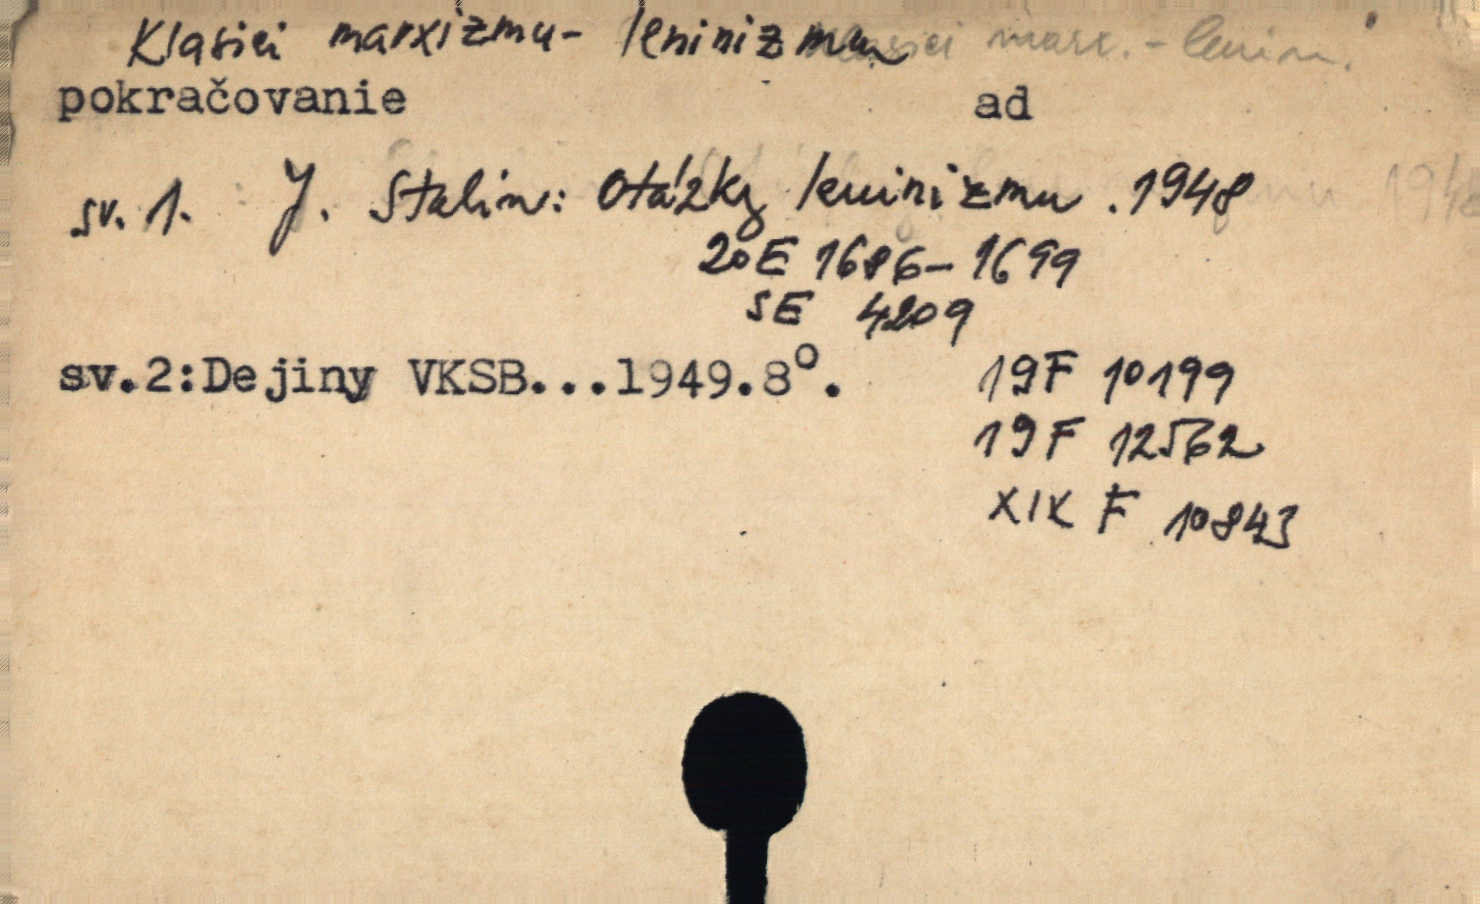 Klasici marxizmu-leninizmu klasici marx.-lenin.
pokračovanie ad
sv. 1. J. Stalin: Otázky leninizmu. 1948
20E 1686-1699
SE 4209
sv.2:Dejiny VKSB...1949.8°. 19F 10199
19F 12562
XIX F 10843